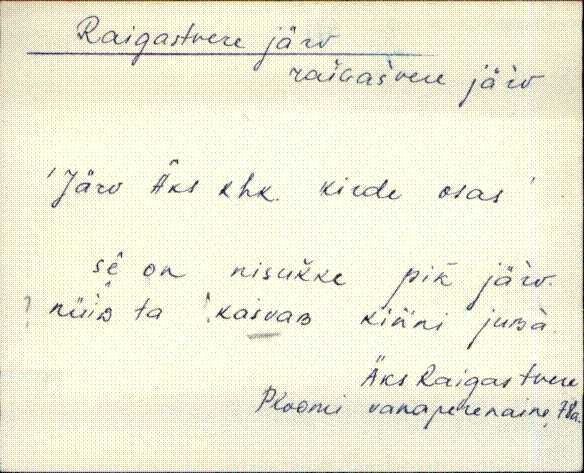 Raigastvere järv
raiGas̀vere järv
'Järv Äks khk. kirde osas'
sê on nisuk̆ke pik̆ järv.
? nüìᴅ ta kasvaʙ kiǹni juʙà
Äks Raigastvere
Ploomi vanaperenaine, 78a.